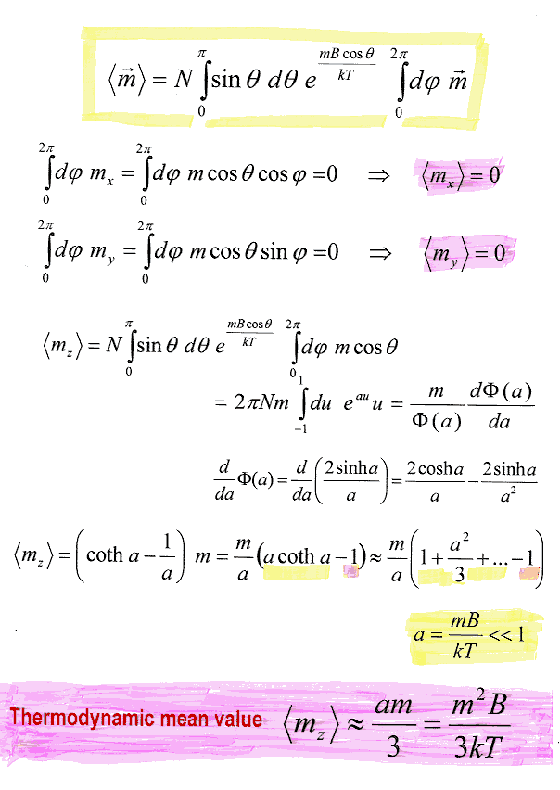 ⟨m⃗⟩ = N ∫₀^π sin θ dθ e^(mB cos θ / kT) ∫₀^2π dφ m⃗
∫₀^2π dφ mₓ = ∫₀^2π dφ m cos θ cos φ =0 ⇒ ⟨mₓ⟩ = 0
∫₀^2π dφ m_y = ∫₀^2π dφ m cos θ sin φ =0 ⇒ ⟨m_y⟩ = 0
⟨m_z⟩ = N ∫₀^π sin θ dθ e^(mB cos θ / kT) ∫₀^2π dφ m cos θ
= 2πNm ∫₋₁^1 du e^(au) u = m/Φ(a) dΦ(a)/da
d/da Φ(a) = d/da (2 sinh a / a) = 2 cosh a / a − 2 sinh a / a²
⟨m_z⟩ = (coth a − 1/a) m = m/a (a coth a − 1) ≈ m/a (1 + a²/3 + ... − 1)
a = mB/kT << 1
Thermodynamic mean value ⟨m_z⟩ ≈ am/3 = m²B/3kT